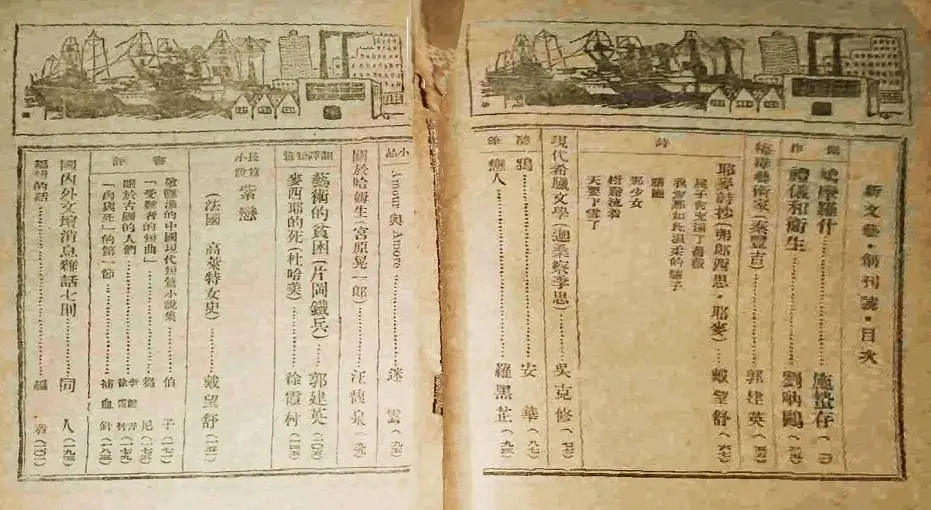 新文藝・創刊號・目次
創作
鳩摩羅什…………施蟄存
禮儀和衛生…………劉吶鷗
藝術家（秦豐吉）…………郭建英
詩
耶麥詩抄（弗郎西思・耶麥）…………戴望舒（六七）
屋子會充滿了薔薇
我愛那如此溫柔的驢子
膳廳
那少女
樹脂流着
天要下雪了
現代希臘文學（迦桑察季思）…………吳克修
隨筆
鴉…………安華（八七）
戀人…………羅黑芷
小品
Amour 與 Amore…………迷雲
關於哈姆生（宮原晃一郎）…………汪馥泉（九九）
翻譯短篇
藝術的貧困（片岡鐵兵）…………郭建英
麥西耶的死（杜哈美）…………徐霞村
長篇小說
紫戀
（法國 高萊特女史）…………戴望舒（一五一）
書評
敬隱漁的中國現代短篇小說集…………伯子（一七一）
「受難者的短曲」…………尼
關於古國的人們…………李健吾 徐霞村（一七九）
「肉與死」的第一節…………補血針
國內外文壇消息雜話七則…………同人
編輯的話…………編者（二〇一）